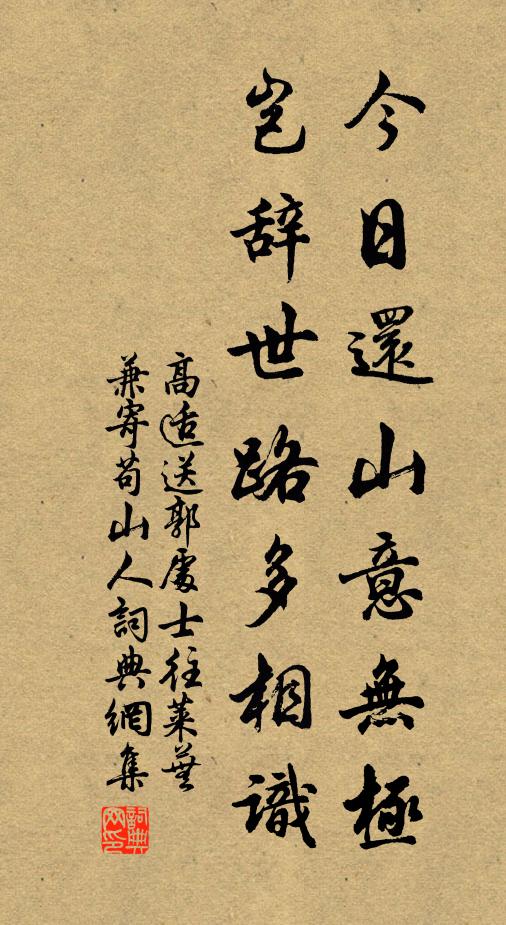 今日還山意無極
豈辞世路多相識
高适送郭處士往萊蕪
兼寄苟山人詞典網集
詞典网印